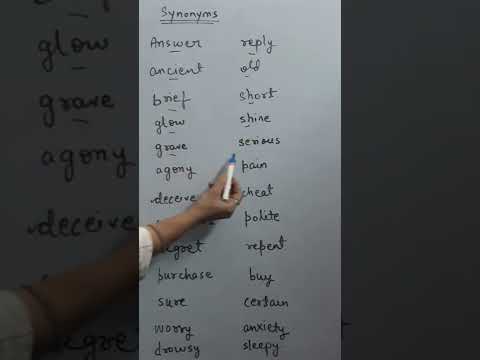 Synonyms
Answer reply
ancient old
brief short
glow shine
grave serious
agony pain
deceive cheat
polite
regret repent
purchase buy
sure certain
worry anxiety
drowsy sleepy